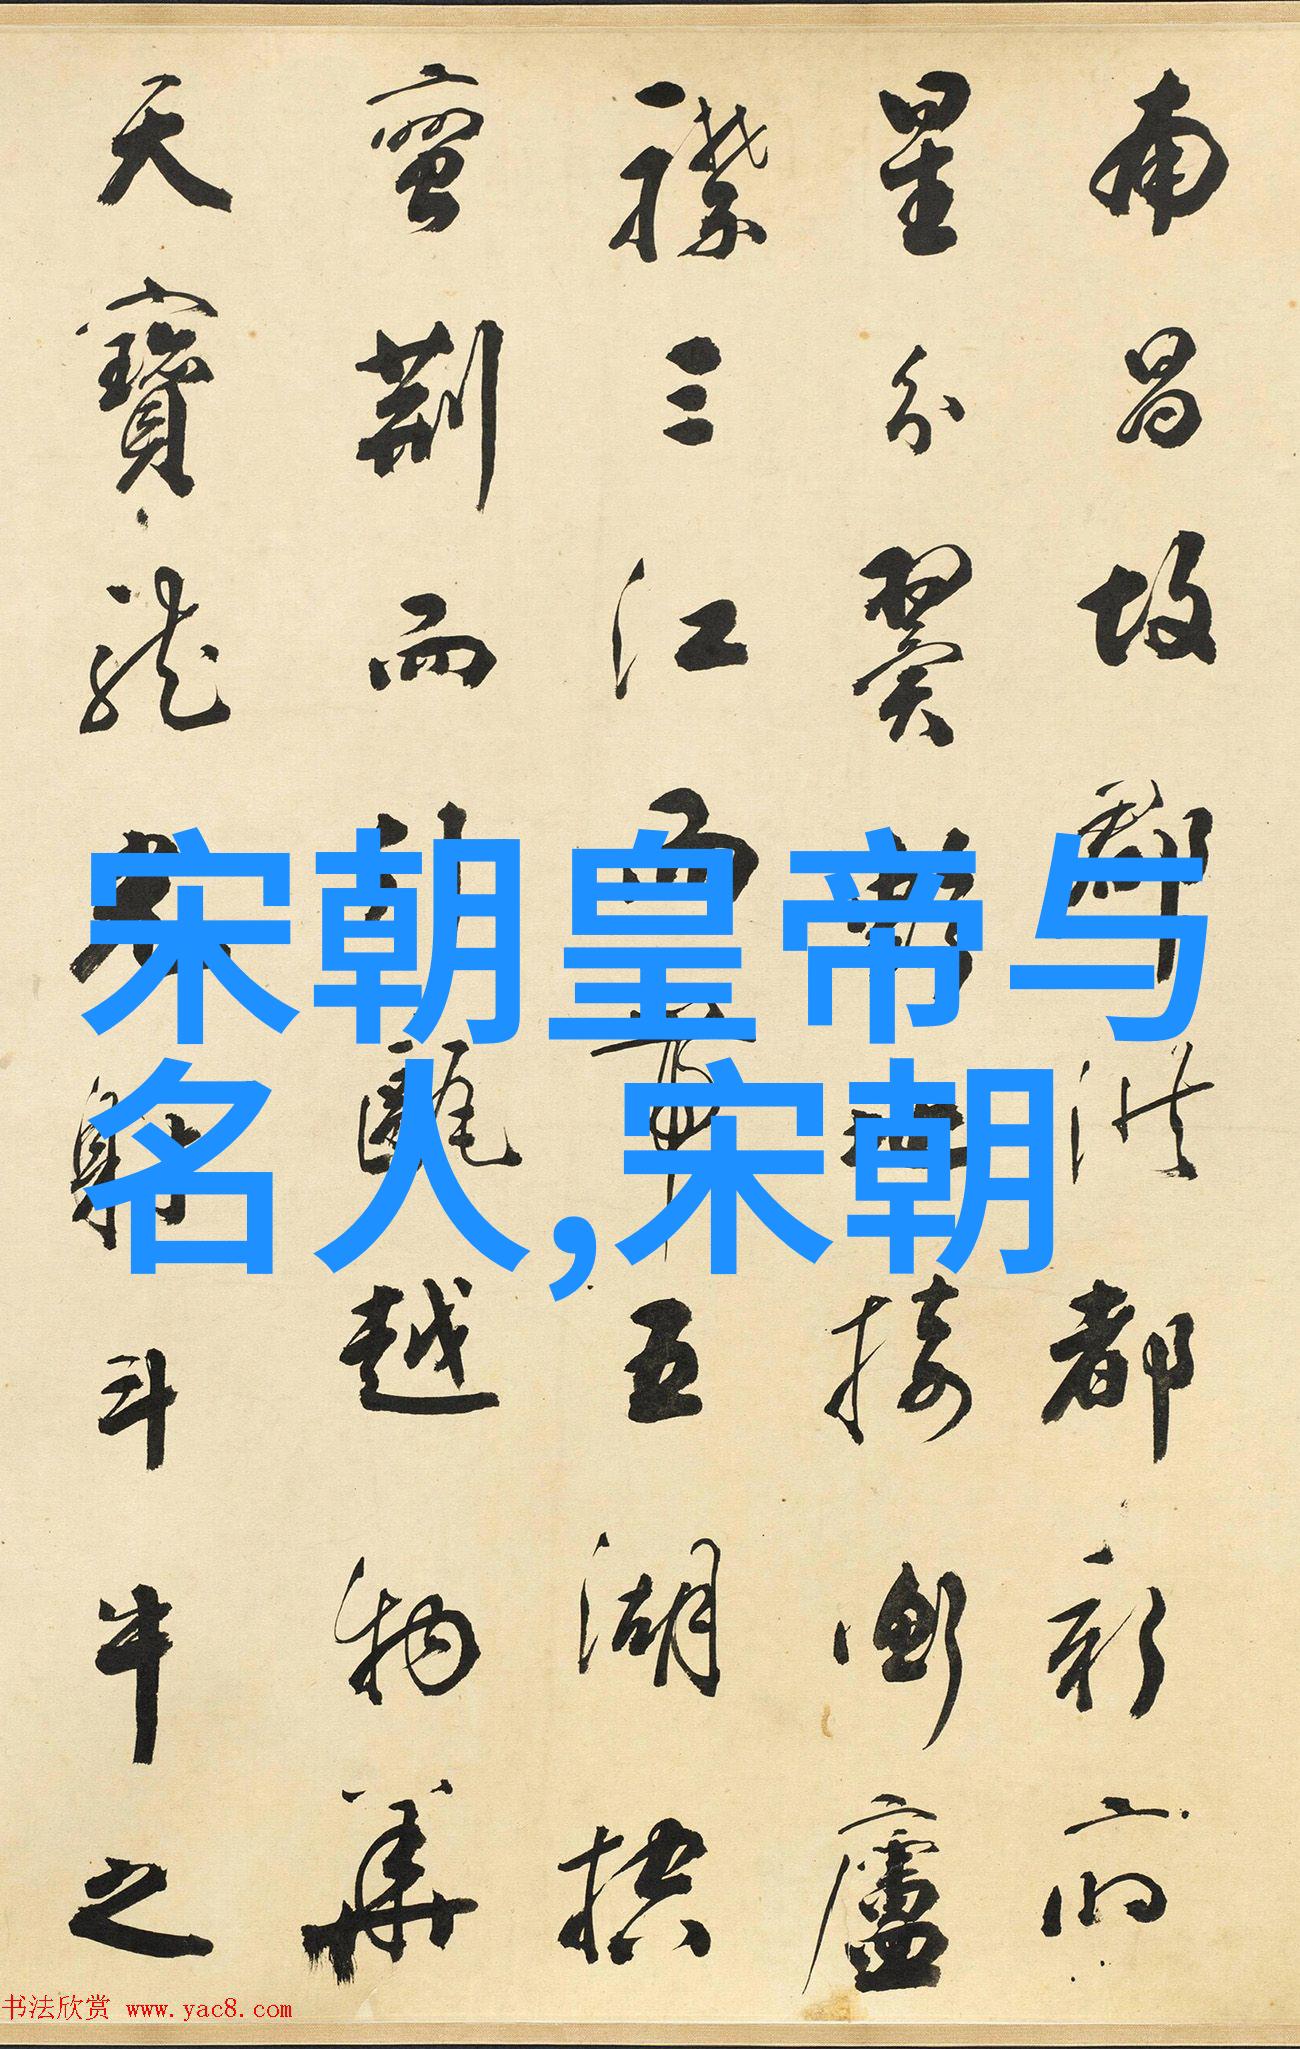 南昌故郡洪都新府
星分翼軫地接衡廬
襟三江而帶五湖控
蠻荊而引甌越物華
天寶龍光射斗牛之
宋朝皇帝与
名人,宋朝
书法欣赏 www.yac8.com